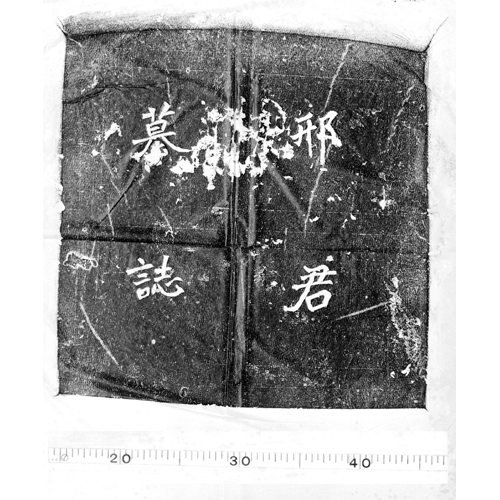 邢君
墓誌
20 30 40